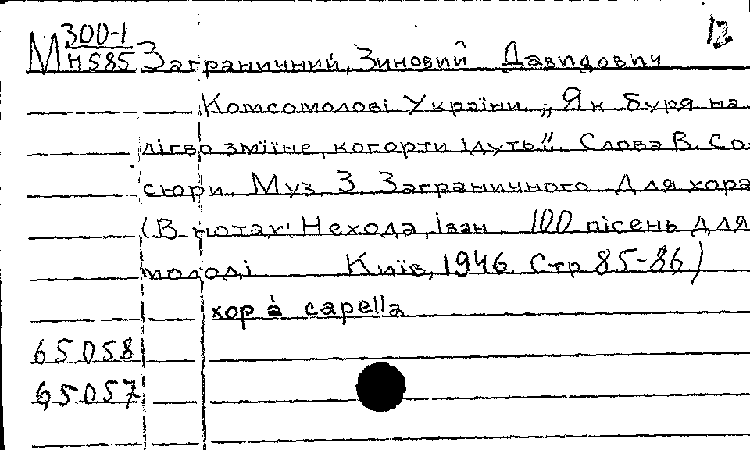 12
М 300-1
Н585 Заграничний, Зиновий Давидович
Комсомолові України „Як буря на
лігво зміїне, когорти ідуть". Слова В. Со
сюри. Муз. З. Заграничного. Для хора
(В нотах: Нехода, Іван. 100 пісень для
молоді Київ, 1946. Стр 85-86)
хор à capella
65058
65057